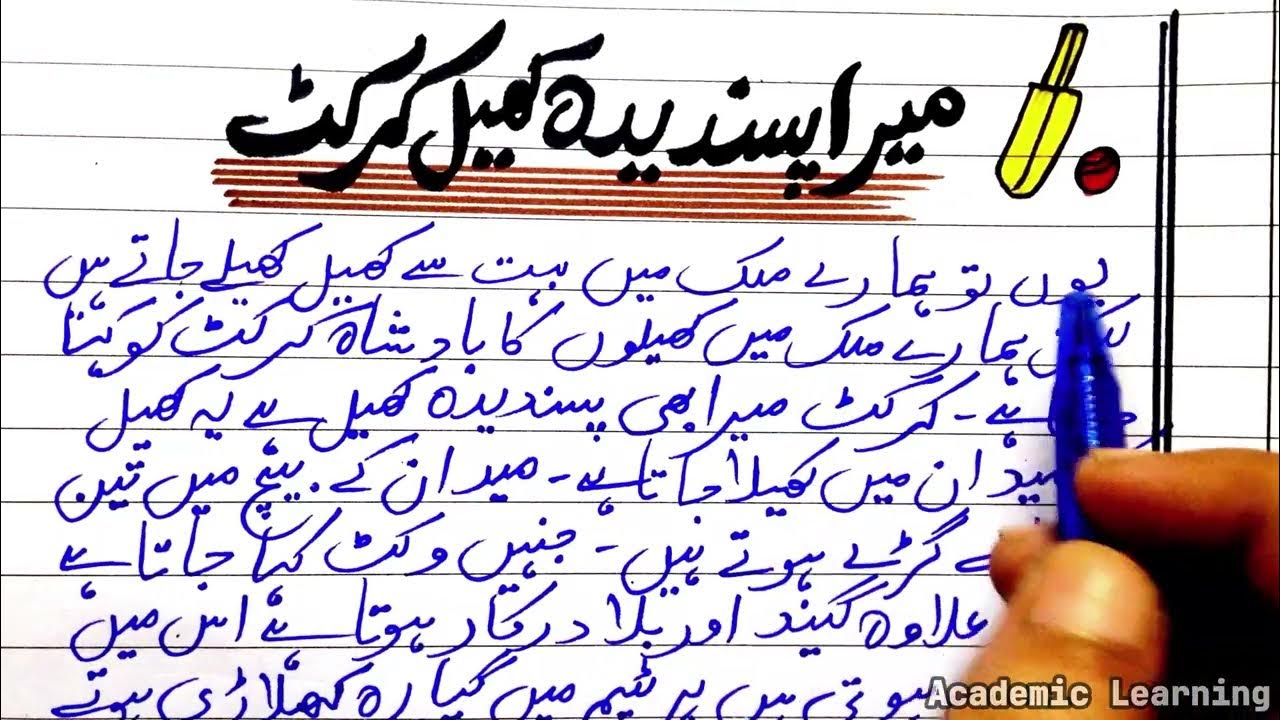 میرا پسندیدہ کھیل کرکٹ
یوں تو ہمارے ملک میں بہت سے کھیل کھیلے جاتے ہیں
لیکن ہمارے ملک میں کھیلوں کا بادشاہ کرکٹ کو کہا
ہے۔ کرکٹ میرا بھی پسندیدہ کھیل ہے یہ کھیل
میدان میں کھیلا جاتا ہے۔ میدان کے بیچ میں تین
گڑے ہوتے ہیں۔ جنہیں وکٹ کہا جاتا ہے
علاوہ گیند اور بلا درکار ہوتا ہے اس میں
ہوتی ہیں ہر ٹیم میں گیارہ کھلاڑی ہوتے
Academic Learning